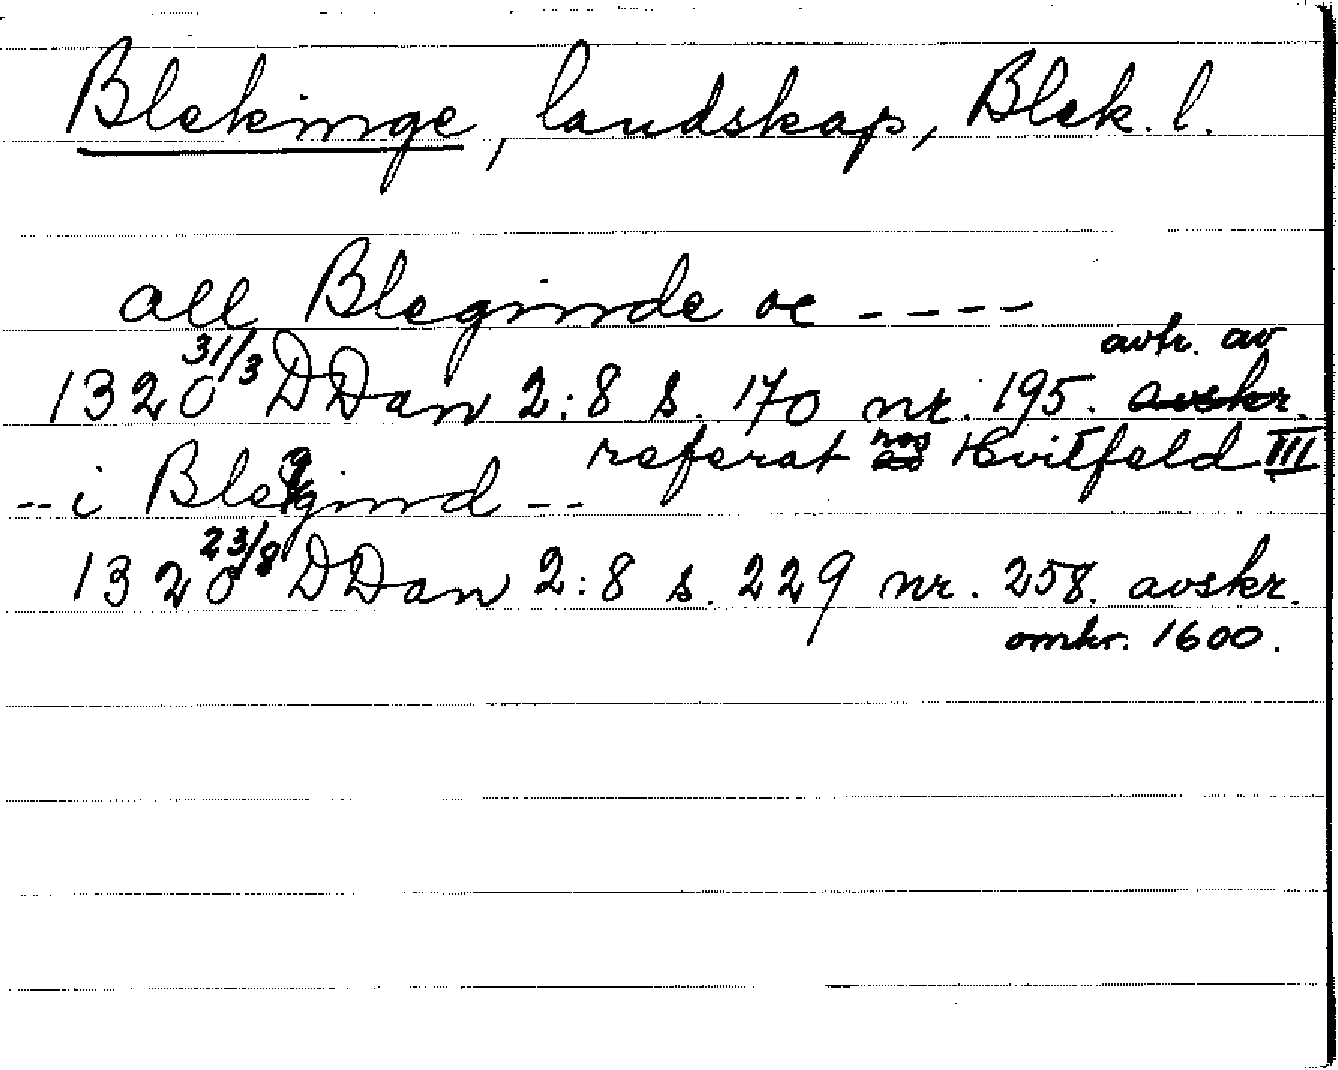 Blekinge, landskap, Blek. l.
all Bleginde oc ----
avtr. av
1320 31/3 DDan 2:8 s. 170 nr. 195. avskr.
referat hos Hvitfeld III
-- i Blegind --
1320 23/8 DDan 2:8 s. 229 nr. 258. avskr.
omkr. 1600.